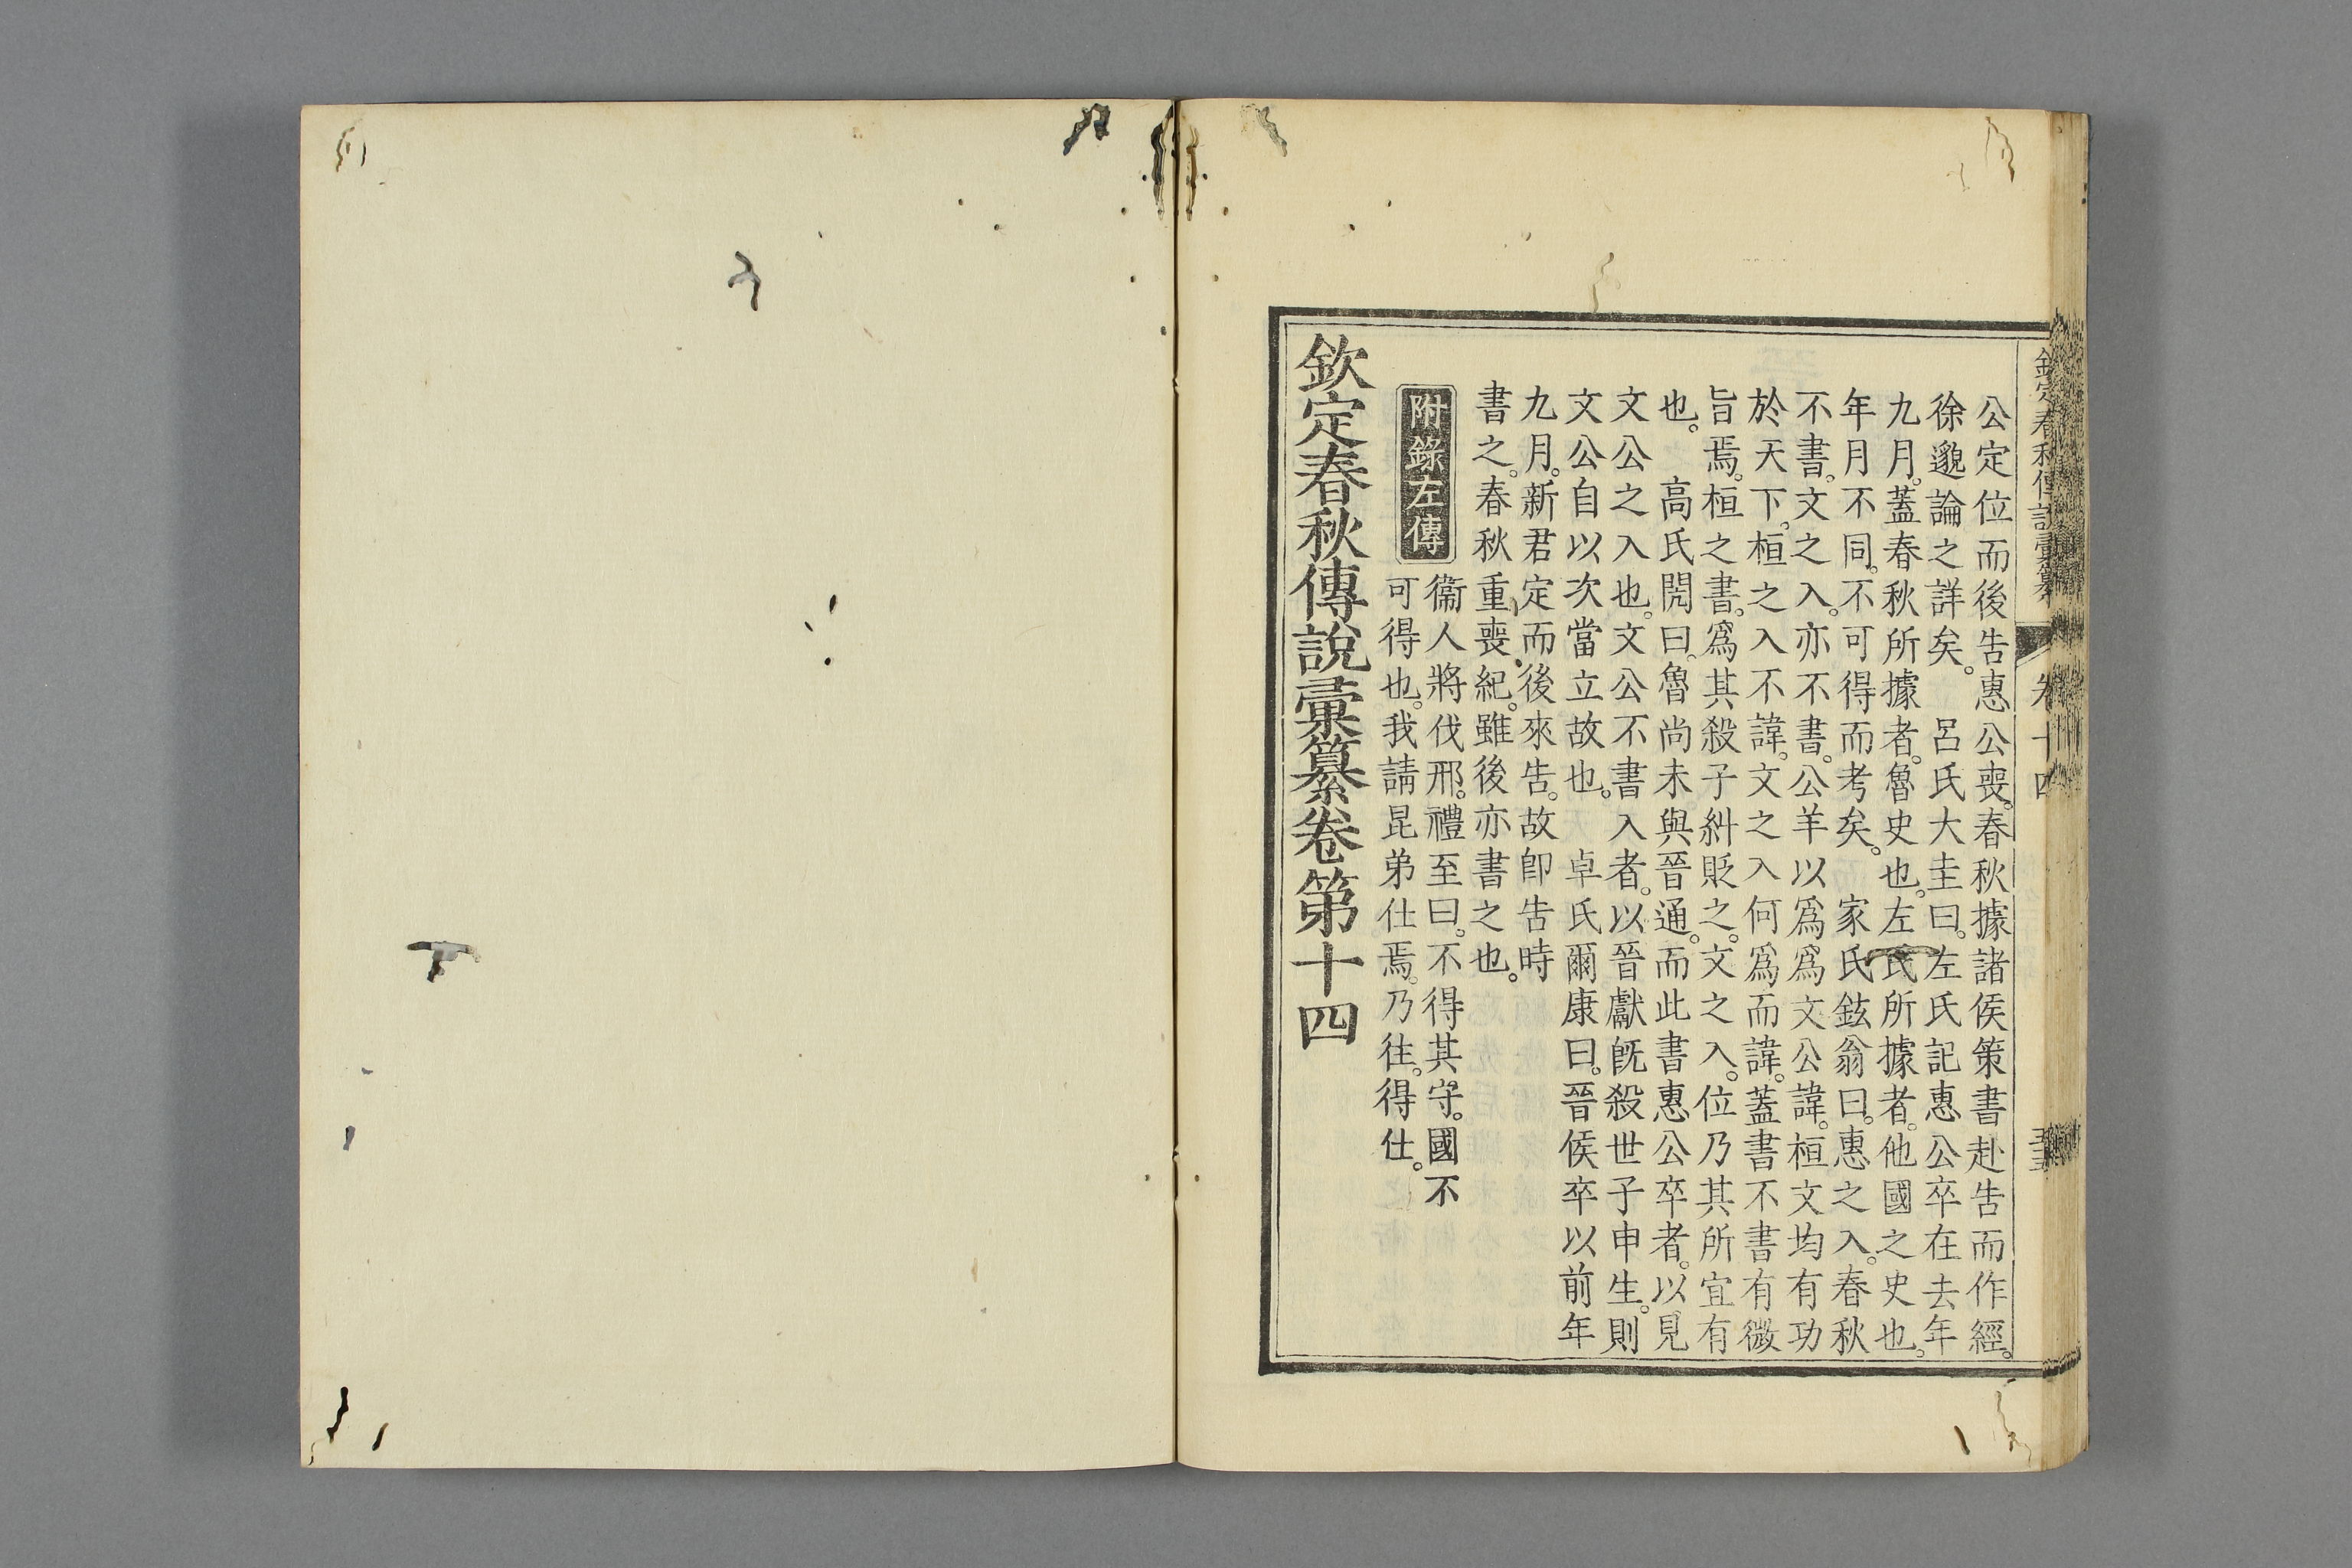 欽定春秋傳說彙纂 卷十四
公定位而後告惠公喪。春秋據諸侯策書赴告而作經。
徐邈論之詳矣。 呂氏大圭曰。左氏記惠公卒在去年
九月。蓋春秋所據者。魯史也。左氏所據者。他國之史也。
年月不同。不可得而考矣。 家氏鉉翁曰。惠之入。春秋
不書。文之入。亦不書。公羊以爲爲文公諱。桓文均有功
於天下。桓之入不諱。文之入何爲而諱。蓋書不書有微
旨焉。桓之書。爲其殺子糾貶之。文之入。位乃其所宜有
也。 高氏閌曰。魯尚未與晉通。而此書惠公卒者。以見
文公之入也。文公不書入者。以晉獻旣殺世子申生。則
文公自以次當立故也。 卓氏爾康曰。晉侯卒以前年
九月。新君定而後來告。故卽告時
書之。春秋重喪紀。雖後亦書之也。
附錄左傳
衞人將伐邢。禮至曰。不得其守。國不
可得也。我請昆弟仕焉。乃往。得仕。
欽定春秋傳說彙纂卷第十四